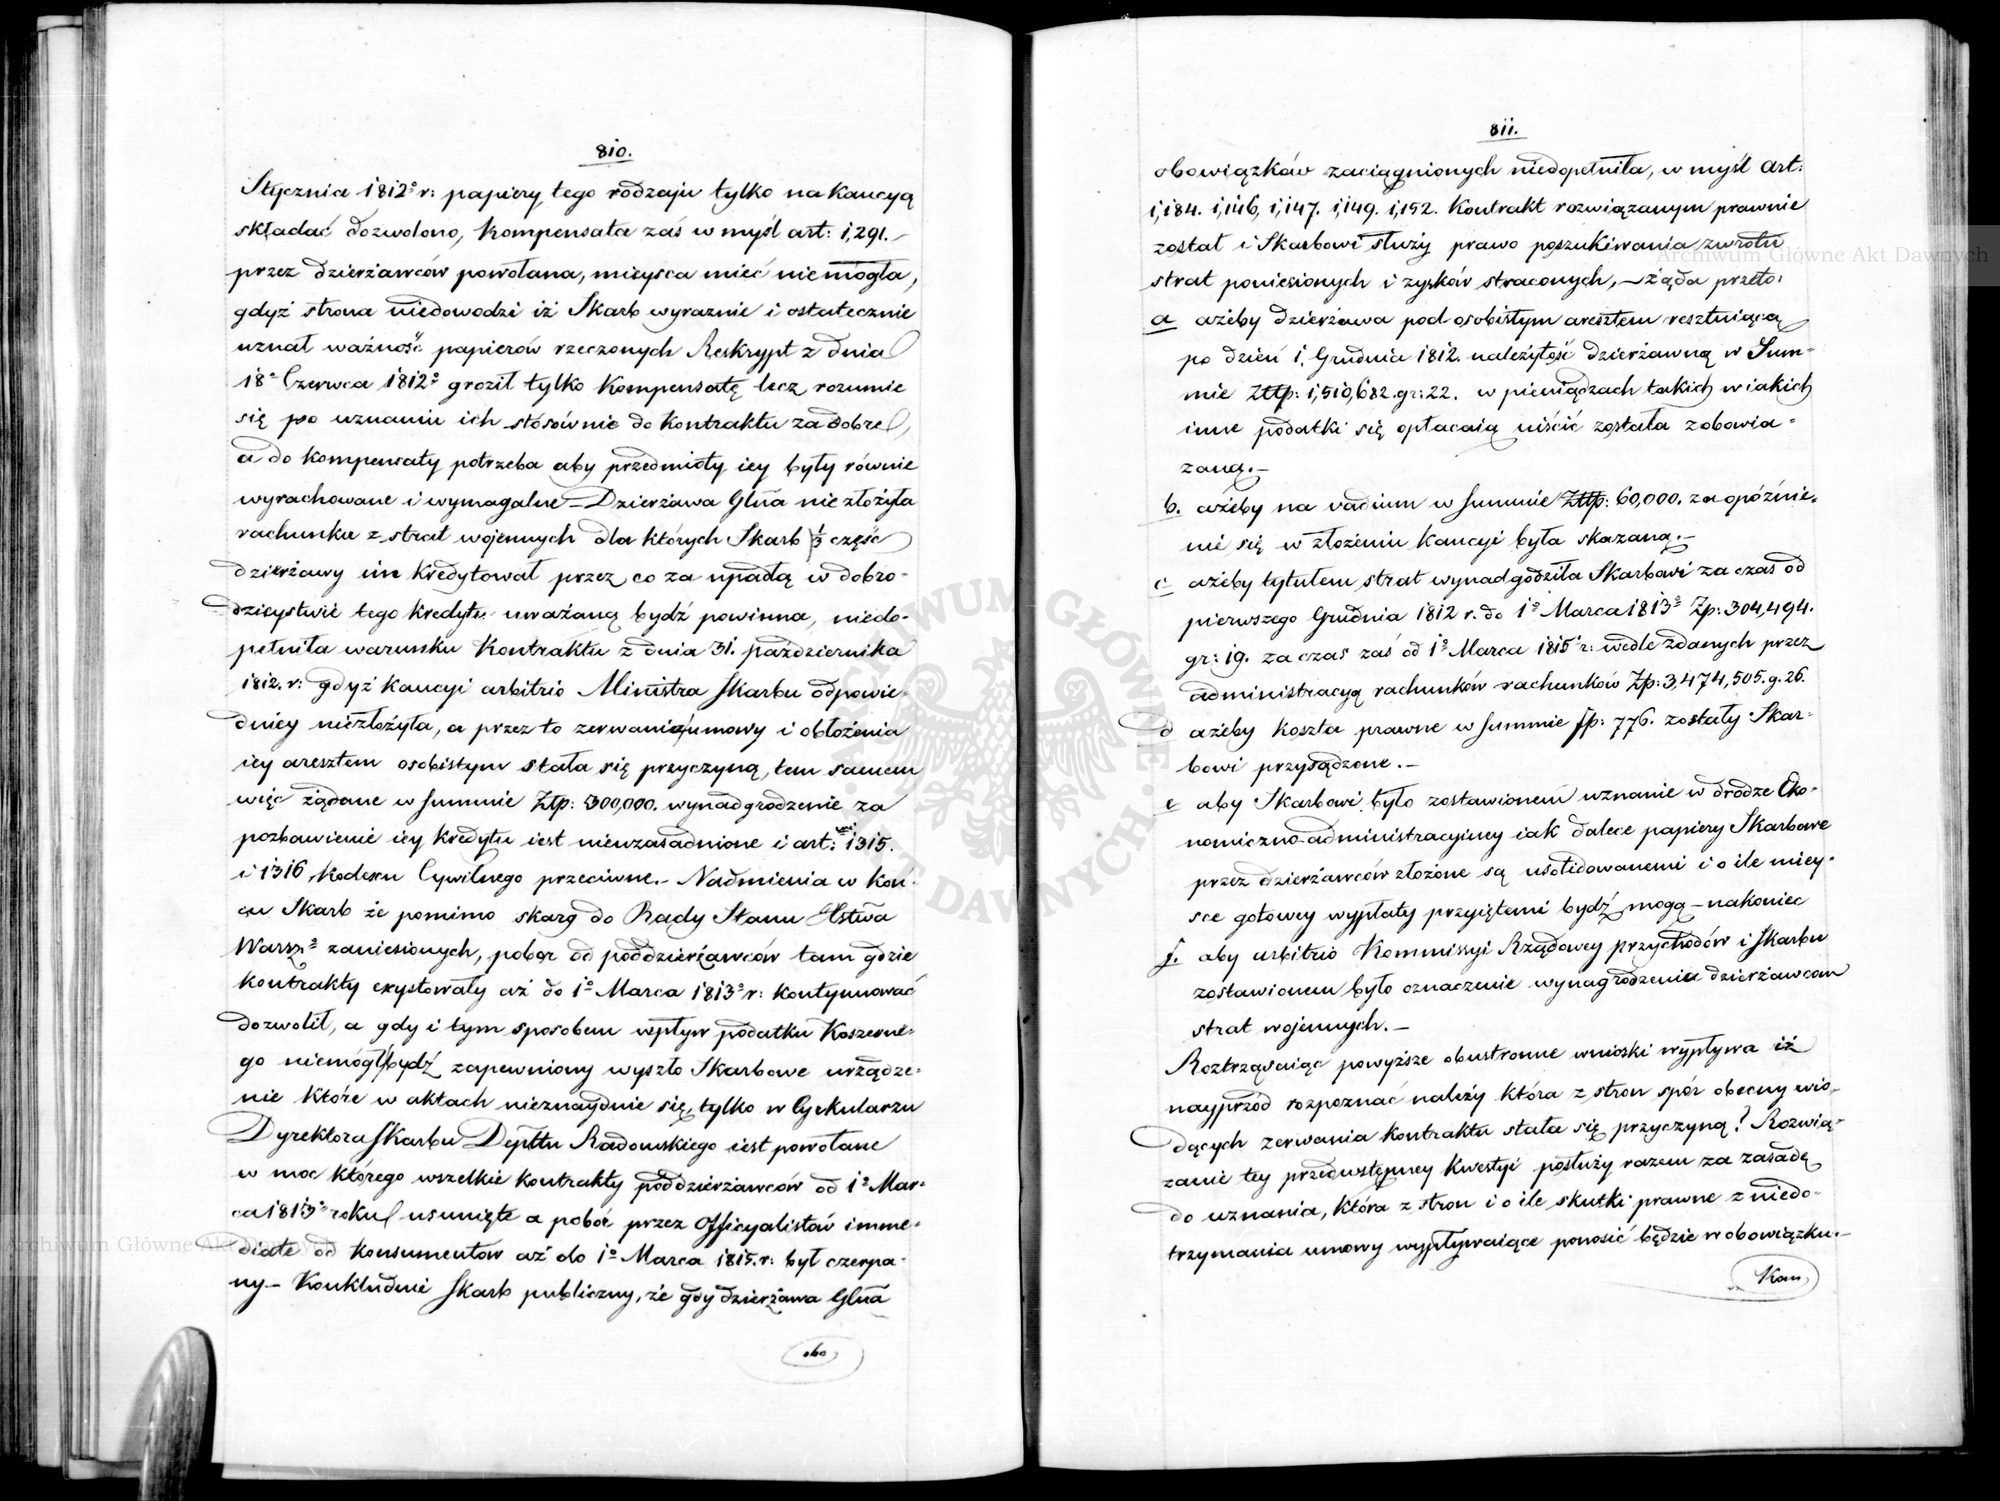 810.
Stycznia 1812º r: papiery tego rodzaju tylko na Kaucyą
składać dozwolono, kompensata zaś w myśl art: 1,291.–
przez dzierżawców powołana, mieysca mieć niemogła,
gdyż strona niedowodzi iż Skarb wyraznie i ostatecznie
uznał ważność papierów rzeczonych Reskrypt z dnia
18º Czerwca 1812º groził tylko Kompensatę lecz rozumie
się po uznaniu ich stósównie do Kontraktu za dobre,
a do kompensaty potrzeba aby przedmioty iey były równie
wyrachowane i wymagalne – Dzierżawa Glna nie złożyła
rachunku z strat wojennych dla których Skarb 1/3 część
dzierżawy im kredytował przez co za upadłą w dobro-
dzieystwie tego kredytu uważaną bydź powinna, niedo-
pełniła warunku Kontraktu z dnia 31. Października
1812. r: gdyż kaucyi arbitrio Ministra Skarbu odpowie-
dniey niezłożyła, a przez to zerwania umowy i obłożenia
iey aresztem osobistym stała się przyczyną, tem samem
więc żądane w Summie Ztp: 300,000. wynadgrodzenie za
pozbawienie iey kredytu iest nieuzasadnione i art: 1315.
i 1316 Kodexu Cywilnego przeciwne.– Nadmienia w koń-
cu Skarb że pomimo skarg do Rady Stanu Xstwa
Warszº zaniesionych, pobor od poddzierżawców tam gdzie
kontrakty exystowały aż do 1º Marca 1813º r: kontynuować
dozwolił, a gdy i tym sposobem wpływ podatku Koszerne-
go niemógł bydź zapewniony wyszło Skarbowe urządze-
nie które w aktach nieznayduie się, tylko w Cyrkularzu
Dyrektora Skarbu Depttu Radomskiego iest powołane
w moc którego wszelkie kontrakty poddzierżawców od 1º Mar-
ca 1813º roku usunięte a pobór przez Officyalistów imme-
diate od Konsumentów aż do 1º Marca 1815. r: był czerpa-
ny – Konkluduie Skarb publiczny, że gdy dzierżawa Glna
obo
811.
obowiązków zaciągnionych niedopełniła, w myśl art:
1,184. 1,146, 1,147. 1,149. 1,152. Kontrakt rozwiązanym prawnie
został i Skarbowi służy prawo poszukiwania zwrotu
strat poniesionych i zysków straconych, – żąda przeto:
a ażeby dzierżawa pod osobistym aresztem resztuiącą
po dzień 1. Grudnia 1812. należytość dzierżawną w Sum-
mie Ztp: 1,510,682. gr: 22. w pieniądzach takich w iakich
inne podatki się opłacaią uiścić została zobowią-
zaną.–
b. ażeby na vadium w Summie Ztp: 60,000. za opóźnie-
nie się w złożeniu Kaucyi była skazaną.–
c ażeby tytułem strat wynadgodziła Skarbowi za czas od
pierwszego Grudnia 1812 r. do 1º Marca 1813º Zp: 304,494.
gr: 19. za czas zaś od 1º Marca 1815 r: wedle zdanych przez
administracyą rachunków rachunków Zp: 3,474,505. g. 26.
d ażeby koszta prawne w Summie fp: 776. zostały Skar-
bowi przysądzone.–
e aby Skarbowi było zostawionem uznanie w drodze Eko-
nomiczno-administracyiney iak dalece papiery Skarbowe
przez dzierżawców złożone są usolidowanemi i o ile miey-
sce gotowey wypłaty przyiętemi bydź mogą – nakoniec
f. aby arbitrio Kommissyi Rządowey przychodów i Skarbu
zostawionem było oznaczenie wynagrodzenia dzierżawcom
strat wojennych.–
Roztrząsaiąc powyższe obustronne wnioski wypływa iż
nayprzód rozpoznać należy która z stron spór obecny wio-
dących zerwania kontraktu stała się przyczyną? Rozwią-
zanie tey przedwstępney kwestyi posłuży razem za zasadę
do uznania, która z stron i o ile skutki prawne z niedo-
trzymania umowy wypływaiące ponosić będzie w obowiązku.–
Kon
Archiwum Główne Akt Dawnych
Archiwum Główne Akt Dawnych
ARCHIWUM GŁÓWNE AKT DAWNYCH